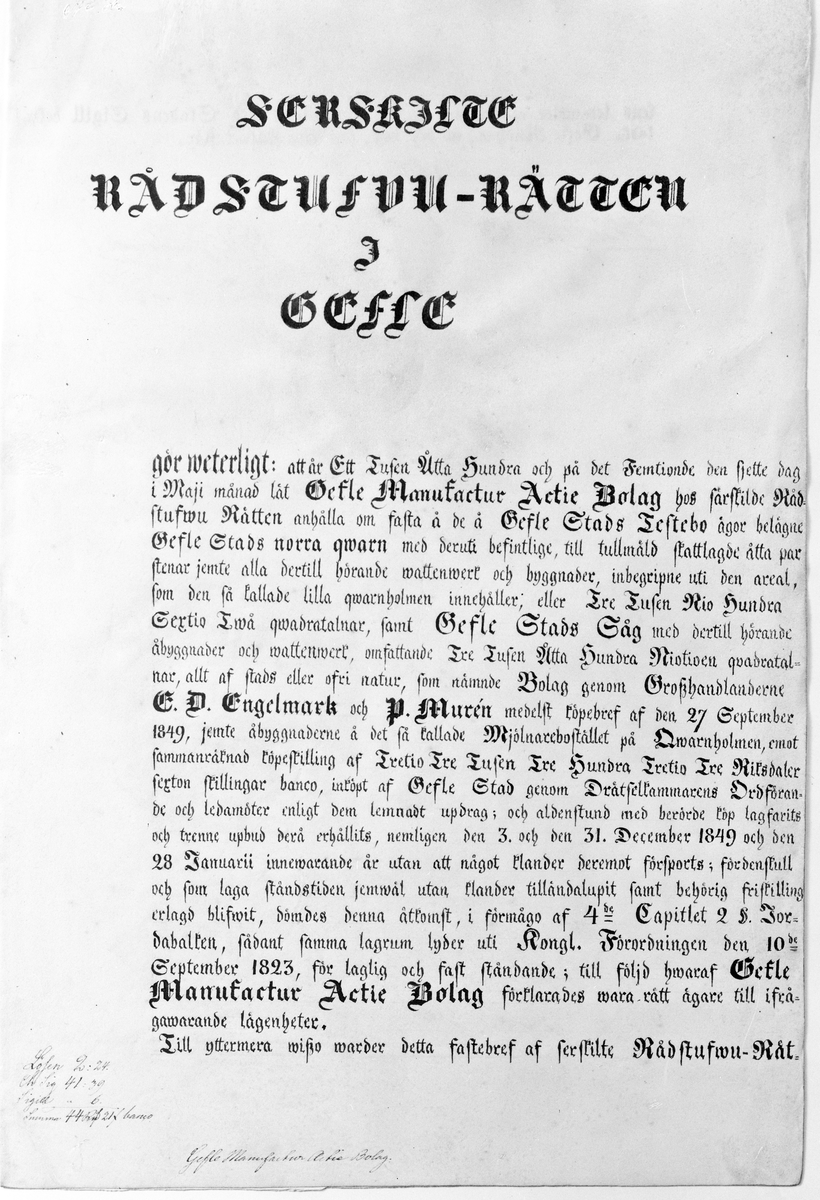 SERSKILTE
RÅDSTUFVU-RÄTTEN
I
GEFLE
gör weterligt: att år Ett Tusen Åtta Hundra och på det Femtionde den sjette dag
i Maji månad låt Gefle Manufactur Actie Bolag hos särskilde Råd-
stufwu Rätten anhålla om fasta å de å Gefle Stads Testebo ägor belägne
Gefle Stads norra qwarn med deruti befintlige, till tullmäld skattlagde åtta par
stenar jemte alla dertill hörande wattenwerk och byggnader, inbegripne uti den areal,
som den så kallade lilla qwarnholmen innehåller; eller Tre Tusen Nio Hundra
Sextio Twå qwadratalnar, samt Gefle Stads Såg med dertill hörande
åbyggnader och wattenwerk, omfattande Tre Tusen Åtta Hundra Niotioen qvadratal=
nar, allt af stads eller ofri natur, som nämnde Bolag genom Großhandlanderne
E. D. Engelmark och P. Murén medelst köpebref af den 27 September
1849, jemte åbyggnaderne å det så kallade Mjölnarebostället på Qwarnholmen, emot
sammanräknad köpeskilling af Tretio Tre Tusen Tre Hundra Tretio Tre Riksdaler
sexton skillingar banco, inköpt af Gefle Stad genom Drätselkammarens Ordföran-
de och ledamöter enligt dem lemnadt updrag; och aldenstund med berörde köp lagfarits
och trenne upbud derå erhållits, nemligen den 3. och den 31. December 1849 och den
28 Januarii innewarande år utan att något klander deremot försports; fördenskull
och som laga ståndstiden jemwäl utan klander tilländalupit samt behörig friskilling
erlagd blifwit, dömdes denna åtkomst, i förmågo af 4de Capitlet 2 §. Jor=
dabalken, sådant samma lagrum lyder uti Kongl. Förordningen den 10de
September 1823, för laglig och fast ståndande; till följd hwaraf Gefle
Manufactur Actie Bolag förklarades wara rätt ägare till ifrå=
gawarande lägenheter.
Till yttermera wißo warder detta fastebref af serskilte Rådstufwu-Rät=
Lösen 2: 24.
41. 39
Sigill " 6.
Summa 44 21 banco
Gefle Manufactur Actie Bolag.